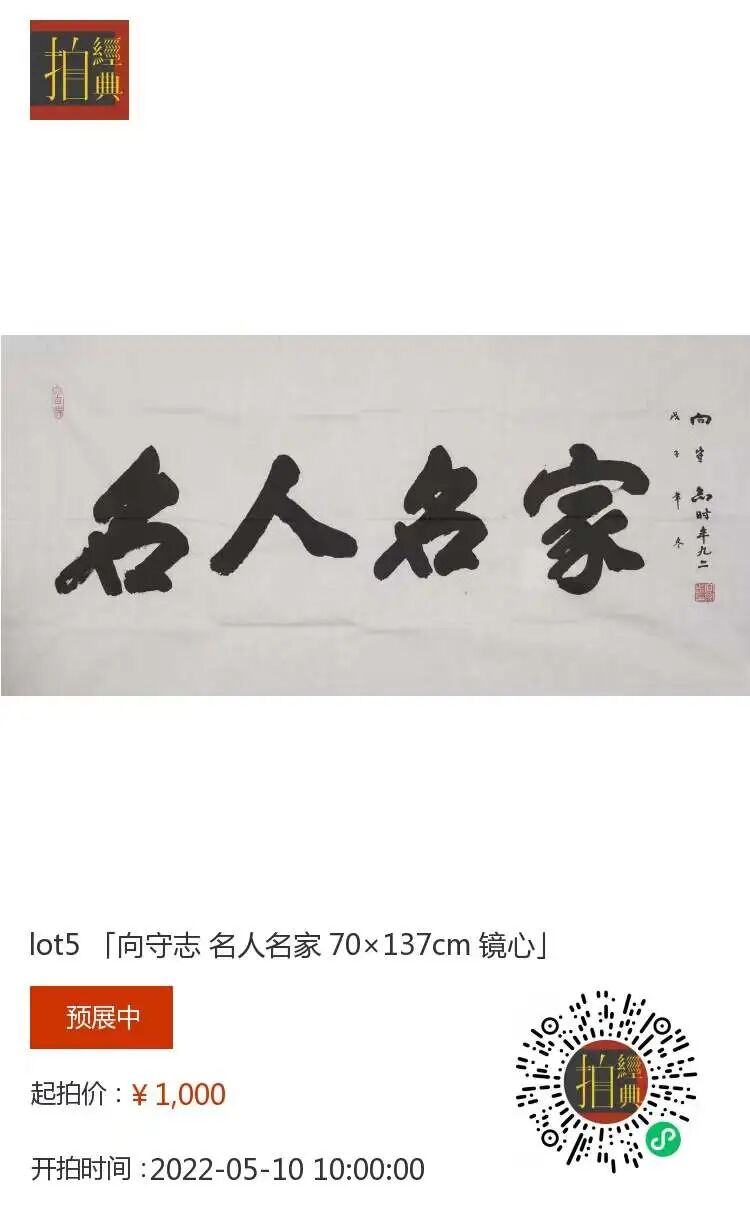 拍
經典
名人名家
向守志时年九二
戊子年冬
lot5 「向守志 名人名家 70×137cm 镜心」
预展中
起拍价：¥ 1,000
开拍时间 :2022-05-10 10:00:00
拍
經典